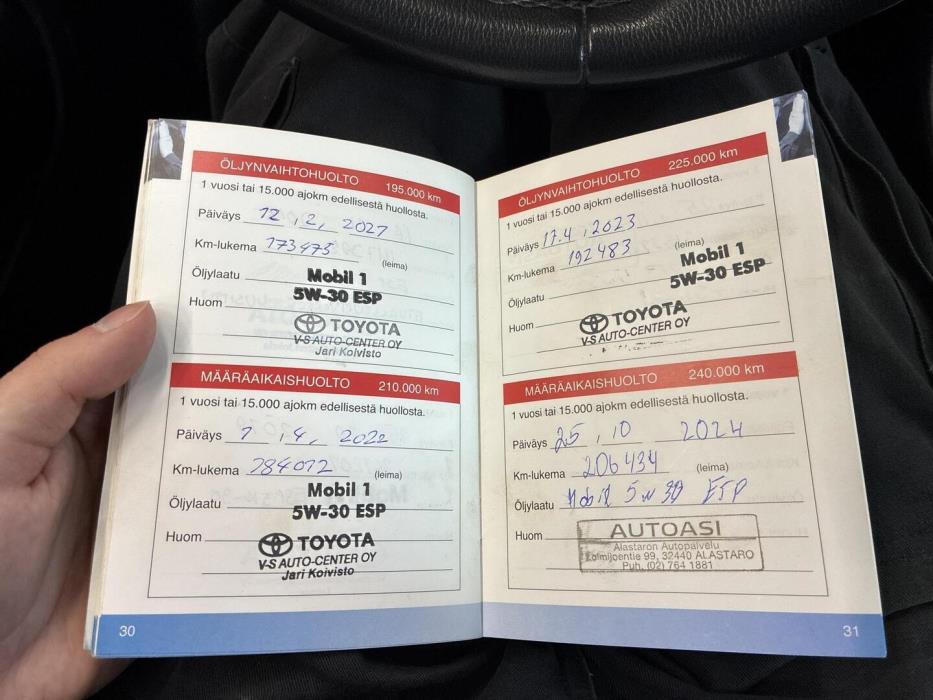 ÖLJYNVAIHTOHUOLTO 195.000 km
1 vuosi tai 15.000 ajokm edellisestä huollosta.
Päiväys 12 , 2 , 2021
Km-lukema 173475
(leima)
Öljylaatu Mobil 1
5W-30 ESP
Huom TOYOTA
V-S AUTO-CENTER OY
Jari Koivisto
MÄÄRÄAIKAISHUOLTO 210.000 km
1 vuosi tai 15.000 ajokm edellisestä huollosta.
Päiväys 7 , 4 , 2022
Km-lukema 184072 (leima)
Öljylaatu Mobil 1
5W-30 ESP
Huom TOYOTA
V-S AUTO-CENTER OY
Jari Koivisto
30
ÖLJYNVAIHTOHUOLTO 225.000 km
1 vuosi tai 15.000 ajokm edellisestä huollosta.
Päiväys 17.4 , 2023
Km-lukema 192483 (leima)
Öljylaatu Mobil 1
5W-30 ESP
Huom TOYOTA
V-S AUTO-CENTER OY
MÄÄRÄAIKAISHUOLTO 240.000 km
1 vuosi tai 15.000 ajokm edellisestä huollosta.
Päiväys 25 , 10 2024
Km-lukema 206434 (leima)
Öljylaatu Mobil 5w30 ESP
Huom AUTOASI
Alastaron Autopalvelu
Loimijoentie 99, 32440 ALASTARO
Puh. (02) 764 1881
31